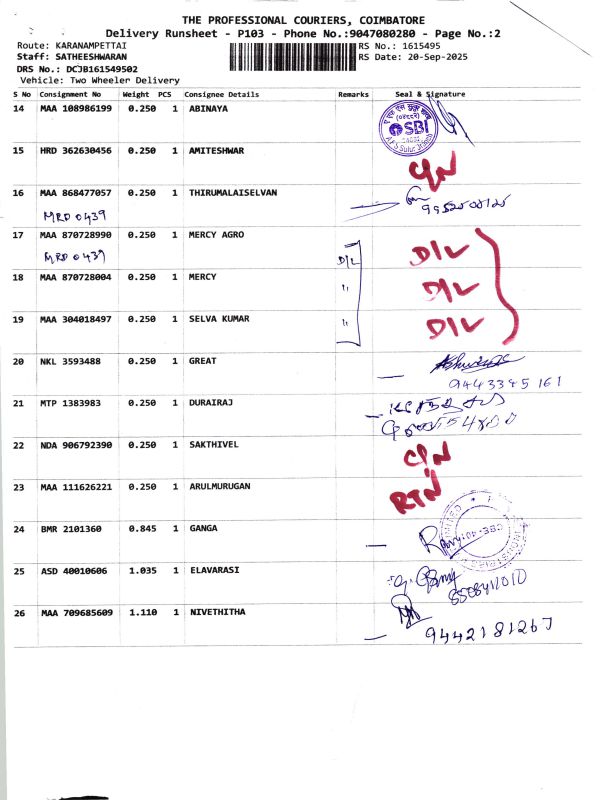 THE PROFESSIONAL COURIERS, COIMBATORE
Delivery Runsheet - P103 - Phone No.:9047080280 - Page No.:2
Route: KARANAMPETTAI RS No.: 1615495
Staff: SATHEESHWARAN RS Date: 20-Sep-2025
DRS No.: DCJB161549502
Vehicle: Two Wheeler Delivery
S No Consignment No Weight PCS Consignee Details Remarks Seal & Signature
14 MAA 108986199 0.250 1 ABINAYA
SBI
15 HRD 362630456 0.250 1 AMITESHWAR
C/N
16 MAA 868477057 0.250 1 THIRUMALAISELVAN
MRD 0439
17 MAA 870728990 0.250 1 MERCY AGRO D/L D/L
MRD 0439
18 MAA 870728004 0.250 1 MERCY " D/L
19 MAA 304018497 0.250 1 SELVA KUMAR " D/L
20 NKL 3593488 0.250 1 GREAT
9443395161
21 MTP 1383983 0.250 1 DURAIRAJ
22 NDA 906792390 0.250 1 SAKTHIVEL C/N
23 MAA 111626221 0.250 1 ARULMURUGAN RTN
24 BMR 2101360 0.845 1 GANGA
25 ASD 40010606 1.035 1 ELAVARASI
26 MAA 709685609 1.110 1 NIVETHITHA
9442181267